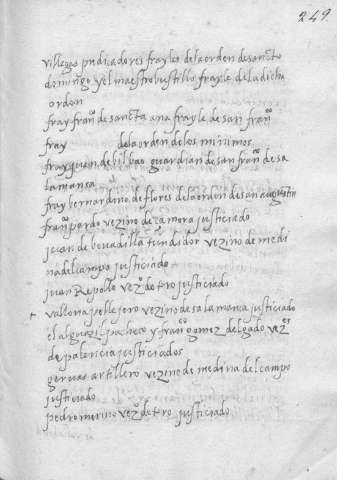 249
villegas predicadores frayles dela orden de sancto
domingo y el maestro bustillo frayle dela dicha
orden
fray fran^co de sancta ana frayle de san fran^co
fray dela orden delos minimos
fray juan de bilbao guardian de san fran^co de sa
lamanca
fray bernardino de flores dela orden de san augustin
fran^co pardo vezino de çamora justiciado
juan de bouadilla tundidor vezino de medi
na del campo justiciado
juan Repollo vez^o de toro justiciado
valloria pellejero vezino de salamanca justiciado
el alguazil pacheco y fran^co gomez delgado vez^os
de palencia justiciados
geruas artillero vezino de medina del campo
justiciado
pedro merino vez^o de toro justiciado